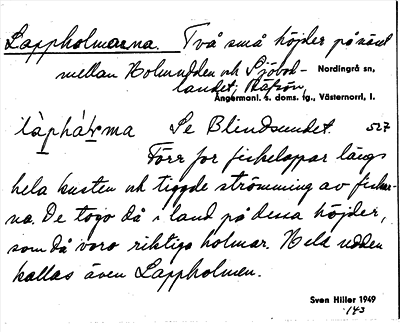 Lappholmarna. Två små höjder på näset
mellan Holmudden och Sjöbod-
landet, Råfsön. Nordingrå sn,
Ångermanl. s. doms. fg., Västernorrl. l.
làphárma Se Blindsundet. 527
Förr for fiskelappar längs
hela kusten och tiggde strömming av fiskar-
na. De togo då i land på dessa höjder,
som då voro riktiga holmar. Hela udden
kallas även Lappholmen.
Sven Hiller 1949
143